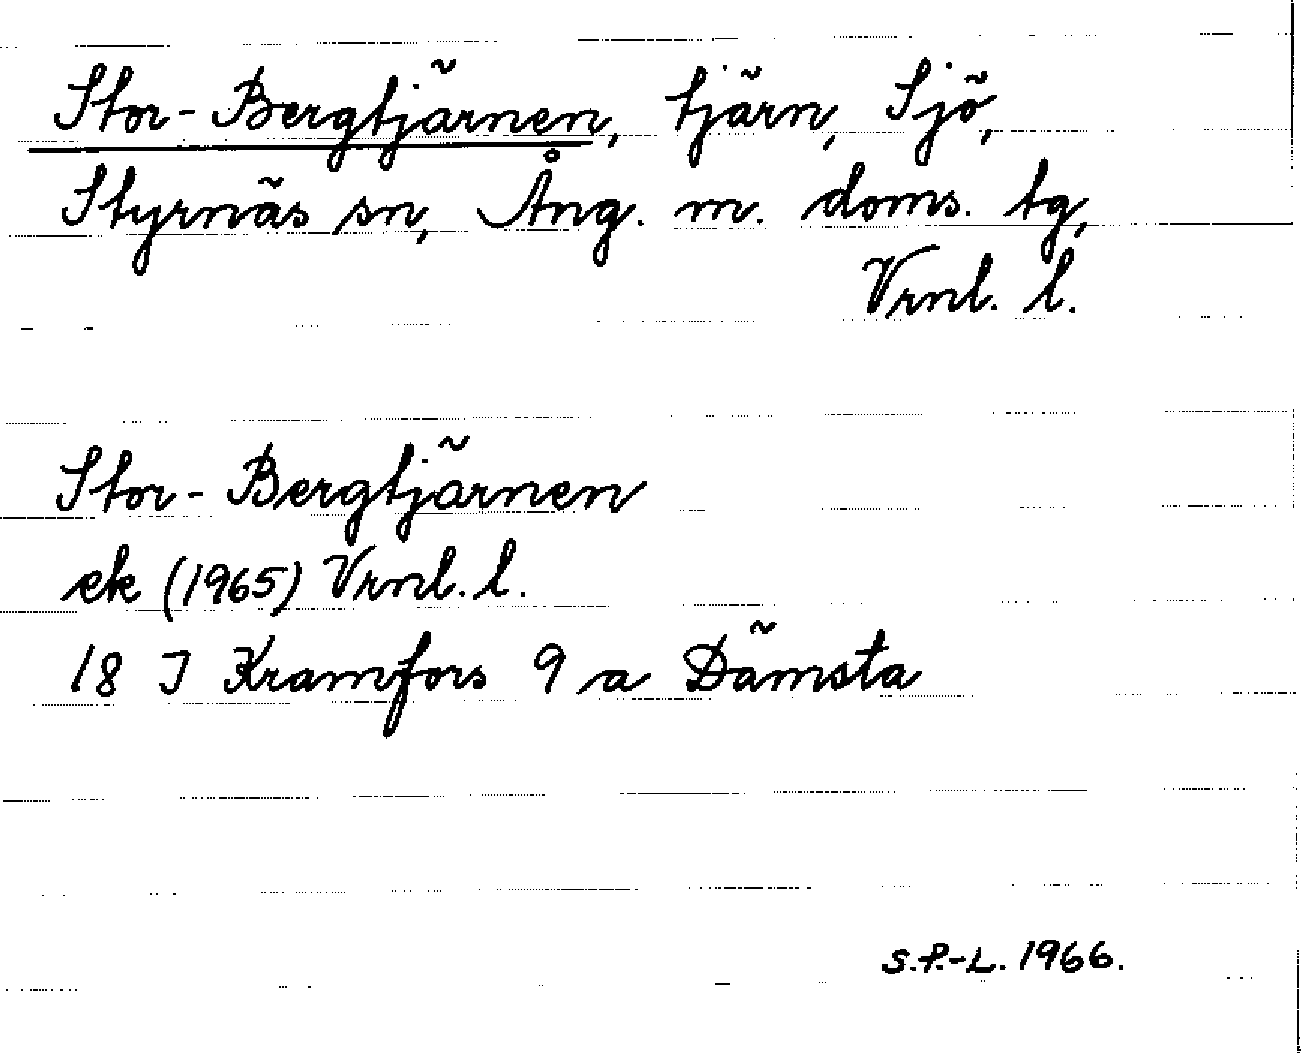 Stor-Bergtjärnen, tjärn, Sjö,
Styrnäs sn, Ång. m. doms. tg,
Vrnl. l.
Stor-Bergtjärnen
ek (1965) Vrnl. l.
18 J Kramfors 9 a Dämsta
S.P.-L. 1966.